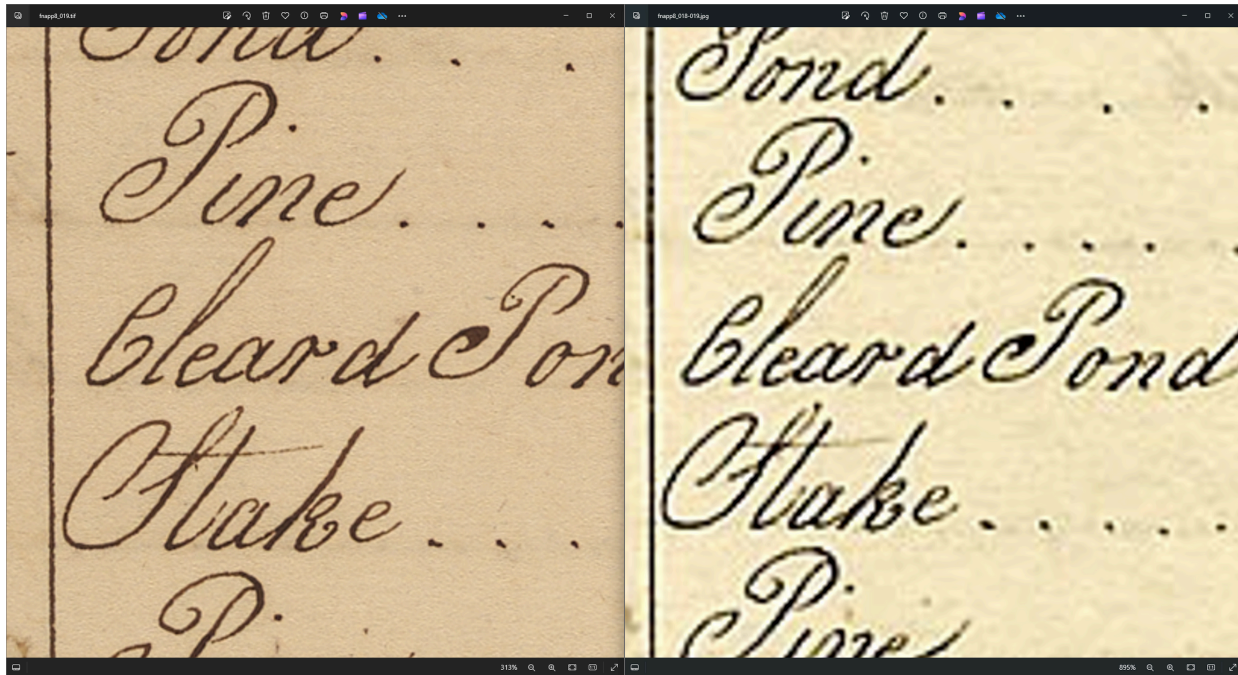 fnapp8_019.tif
Pond. . .
Pine. . . .
Cleard Pon
Stake . . .
313%
fnapp8_018-019.jpg
Pond. . . .
Pine. . . . .
Cleard Pond
Stake . . . . .
Pine
895%